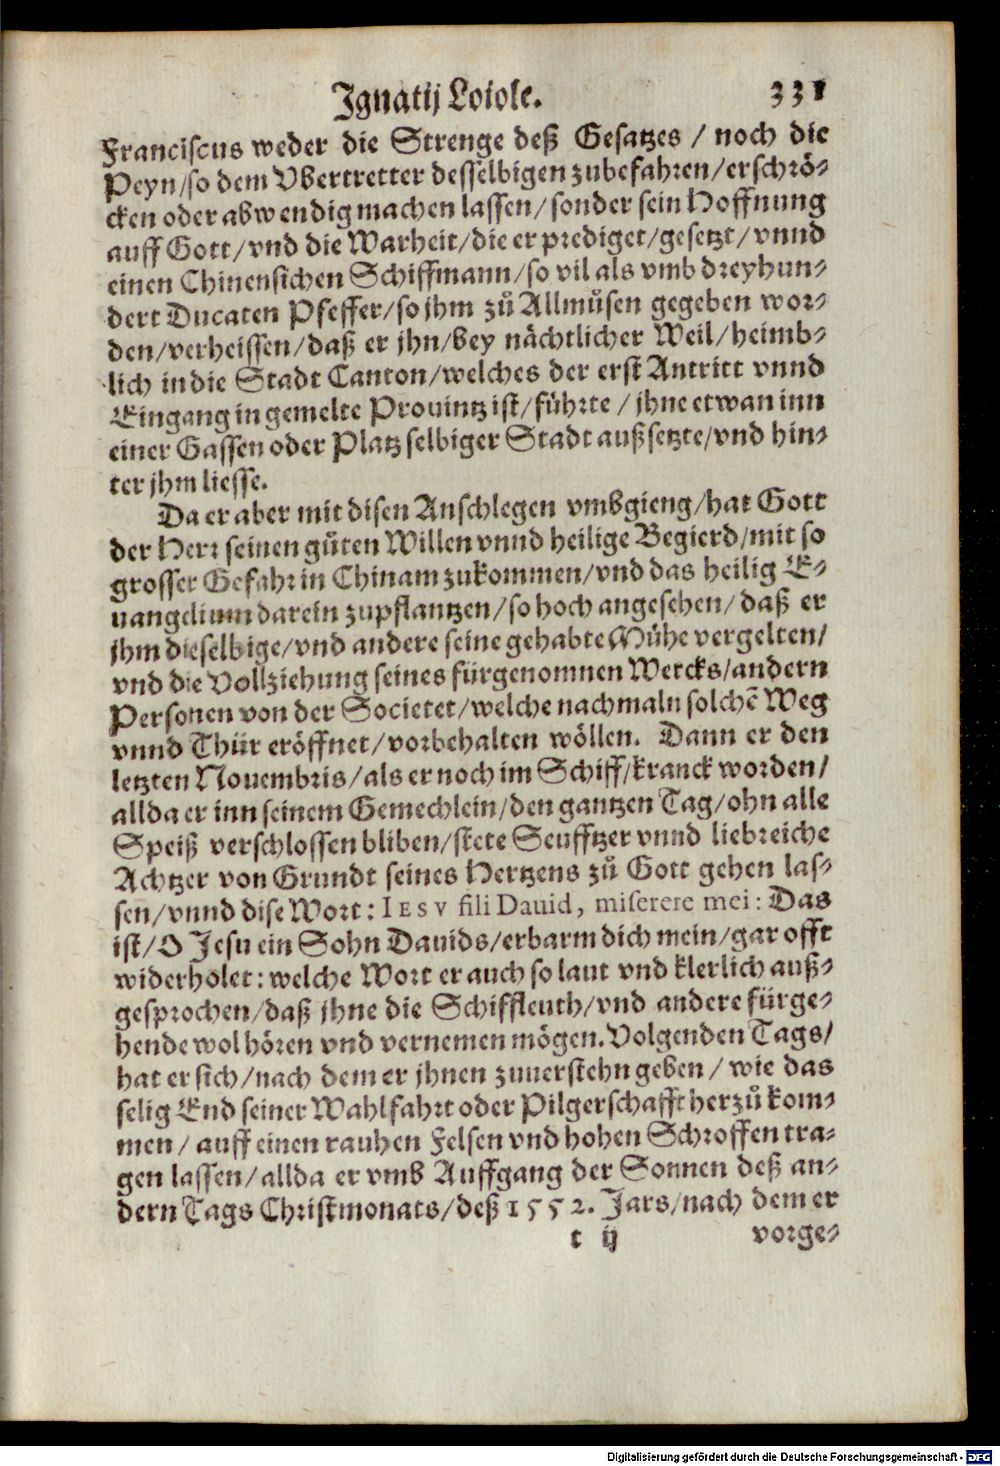 Ignatij Loiole. 331
Franciscus weder die Strenge deß Gesatzes / noch die
Peyn/so dem Vbertretter desselbigen zubefahren/erschrö-
cken oder abwendig machen lassen/sonder sein Hoffnung
auff Gott/vnd die Warheit/die er prediget/gesetzt/vnnd
einen Chinensichen Schiffmann/so vil als vmb dreyhun-
dert Ducaten Pfeffer/so jhm zů Allmůsen gegeben wor-
den/verheissen/daß er jhn/bey nächtlicher Weil/heimb-
lich in die Stadt Canton/welches der erst Antritt vnnd
Eingang in gemelte Prouintz ist/führte / jhne etwan inn
einer Gassen oder Platz selbiger Stadt außsetzte/vnd hin-
ter jhm liesse.
Da er aber mit disen Anschlegen vmbgieng/hat Gott
der Herr seinen gůten Willen vnnd heilige Begierd/mit so
grosser Gefahr in Chinam zukommen/vnd das heilig E-
uangelium darein zupflantzen/so hoch angesehen/daß er
jhm dieselbige/vnd andere seine gehabte Mühe vergelten/
vnd die Vollziehung seines fürgenomnen Wercks/andern
Personen von der Societet/welche nachmaln solchẽ Weg
vnnd Thür eröffnet/vorbehalten wöllen. Dann er den
letzten Nouembris/als er noch im Schiff/kranck worden/
allda er inn seinem Gemechlein/den gantzen Tag/ohn alle
Speiß verschlossen bliben/stete Seufftzer vnnd liebreiche
Achtzer von Grundt seines Hertzens zů Gott gehen las-
sen/vnnd dise Wort: IESV fili Dauid, miserere mei: Das
ist/O Jesu ein Sohn Dauids/erbarm dich mein/gar offt
widerholet: welche Wort er auch so laut vnd klerlich auß-
gesprochen/daß jhne die Schiffleuth/vnd andere fürge-
hende wol hören vnd vernemen mögen. Volgenden Tags/
hat er sich/nach dem er jhnen zuuerstehn geben / wie das
selig End seiner Wahlfahrt oder Pilgerschafft herzů kom-
men / auff einen rauhen Felsen vnd hohen Schroffen tra-
gen lassen/allda er vmb Auffgang der Sonnen deß an-
dern Tags Christmonats/deß 1552. Jars/nach dem er
t ij vorge-
Digitalisierung gefördert durch die Deutsche Forschungsgemeinschaft - DFG